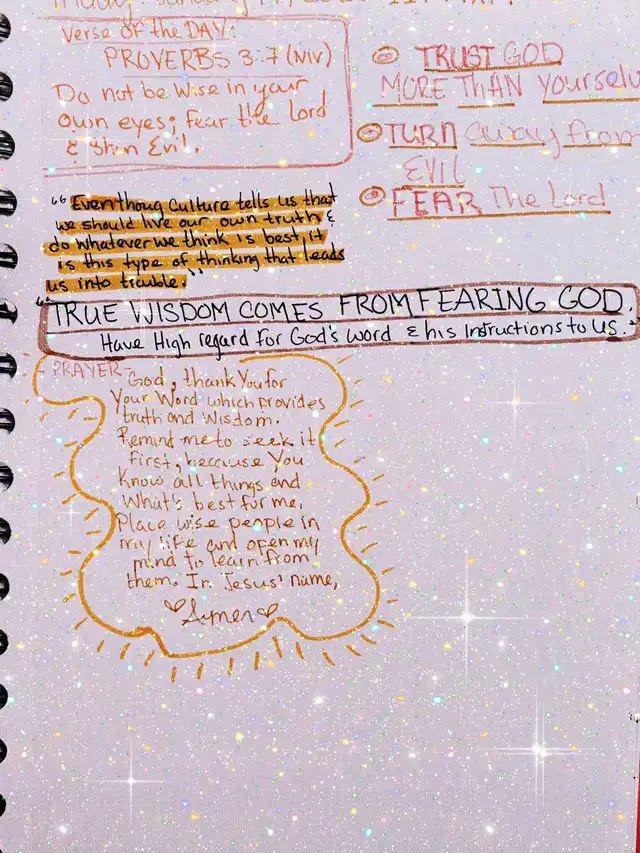 Verse of the DAY:
PROVERBS 3:7 (NIV)
Do not be wise in your
own eyes; fear the Lord
& shun Evil.
TRUST GOD
MORE THAN Yourself
TURN away from
EVIL
FEAR The Lord
"Eventhoug Culture tells us that
we should live our own truth &
do whatever we think is best it
is this type of thinking that leads
us into trouble."
"TRUE WISDOM COMES FROM FEARING GOD.
Have High regard for God's word & his Instructions to us."
PRAYER-
God, thank You for
Your Word which provides
truth and wisdom.
Remind me to seek it
first, because You
Know all things and
What's best for me.
Place wise people in
my life and open my
mind to learn from
them. In Jesus' name,
♡Amen♡